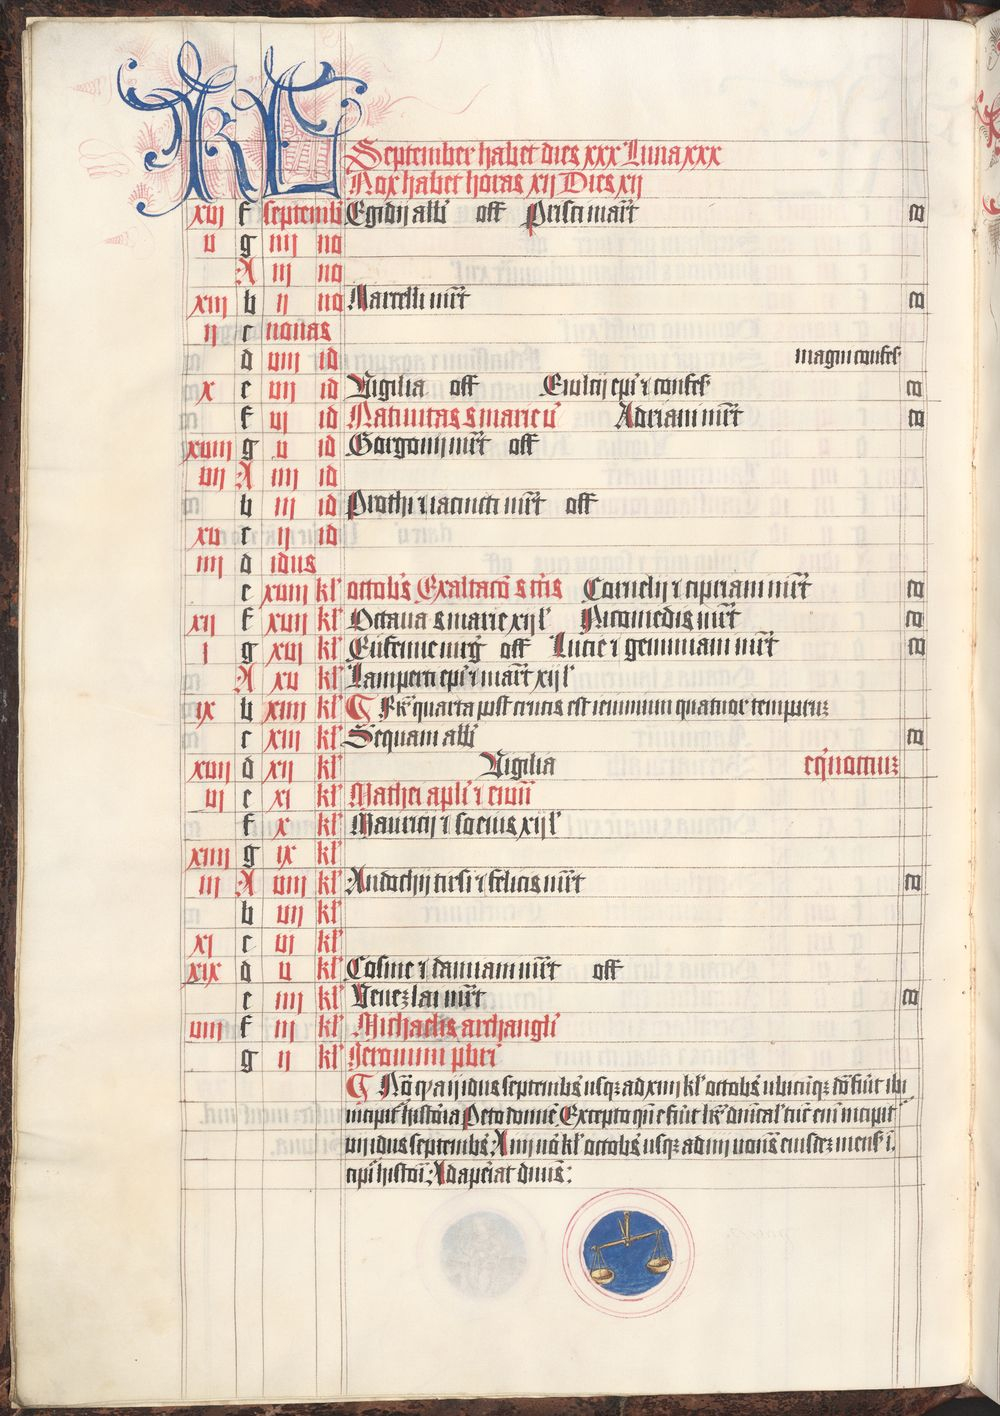 KL
September habet dies xxx Luna xxx
Nox habet horas xij Dies xij
xvj f septemb Egidij abb' off Prisci mart' co
v g iiij no
A iij no
xiij b ij no Marcelli mr̄t co
ij c nonas
d viij id magni confes
x e vij id Vigilia off Eultij ep̄i ⁊ confes co
f vj id Natiuitas s marie v' Adriani mr̄t co
xviij g v id Gorgonij mr̄t off
vij A iiij id
b iij id Prothi ⁊ iacincti mr̄t off
xv c ij id
iiij d idus
e xviij kl' octob's Exaltac̄o s c̄ris Cornelij ⁊ cipriani mr̄t co
xij f xvij kl' Octaua s marie xij l' Nicomedis mr̄t co
j g xvj kl' Eufemie uirg' off Lucie ⁊ geminiani mr̄t co
A xv kl' Lamperti ep̄i ⁊ mart' xij l'
ix b xiiij kl' ¶ Fr̄ quarta post crucis est ieiunium quatuor temporuʒ
c xiij kl' Sequani abb' co
xvij d xij kl' Vigilia eq̄noctiuʒ
vj e xj kl' Mathei apl'i ⁊ ewā
f x kl' Mauricij ⁊ socius xij l'
xiiij g ix kl'
iij A viij kl' Andochij tirsi ⁊ felicis mr̄t co
b vij kl'
xj c vj kl'
xix d v kl' Cosme ⁊ damiani mr̄t off
e iiij kl' Venezlai mr̄t co
viij f iij kl' Michaelis archangli'
g ij kl' Jeronimi pbr̄i
¶ No q̄ a ij idus septembs' usqʒ ad xiiij kl' octobs' ubicūqʒ dō fiūt ibi
incipit' historia Peto domīe Excepto qn̄ fiūt kl' dn̄ical' tūc eni incipit'
iij idus septembs' A iiij nō kl' octobs' usqʒ ad iiij nonas eiusdeʒ mens' i.
cipt' histori' Adaperiat dn̄us :